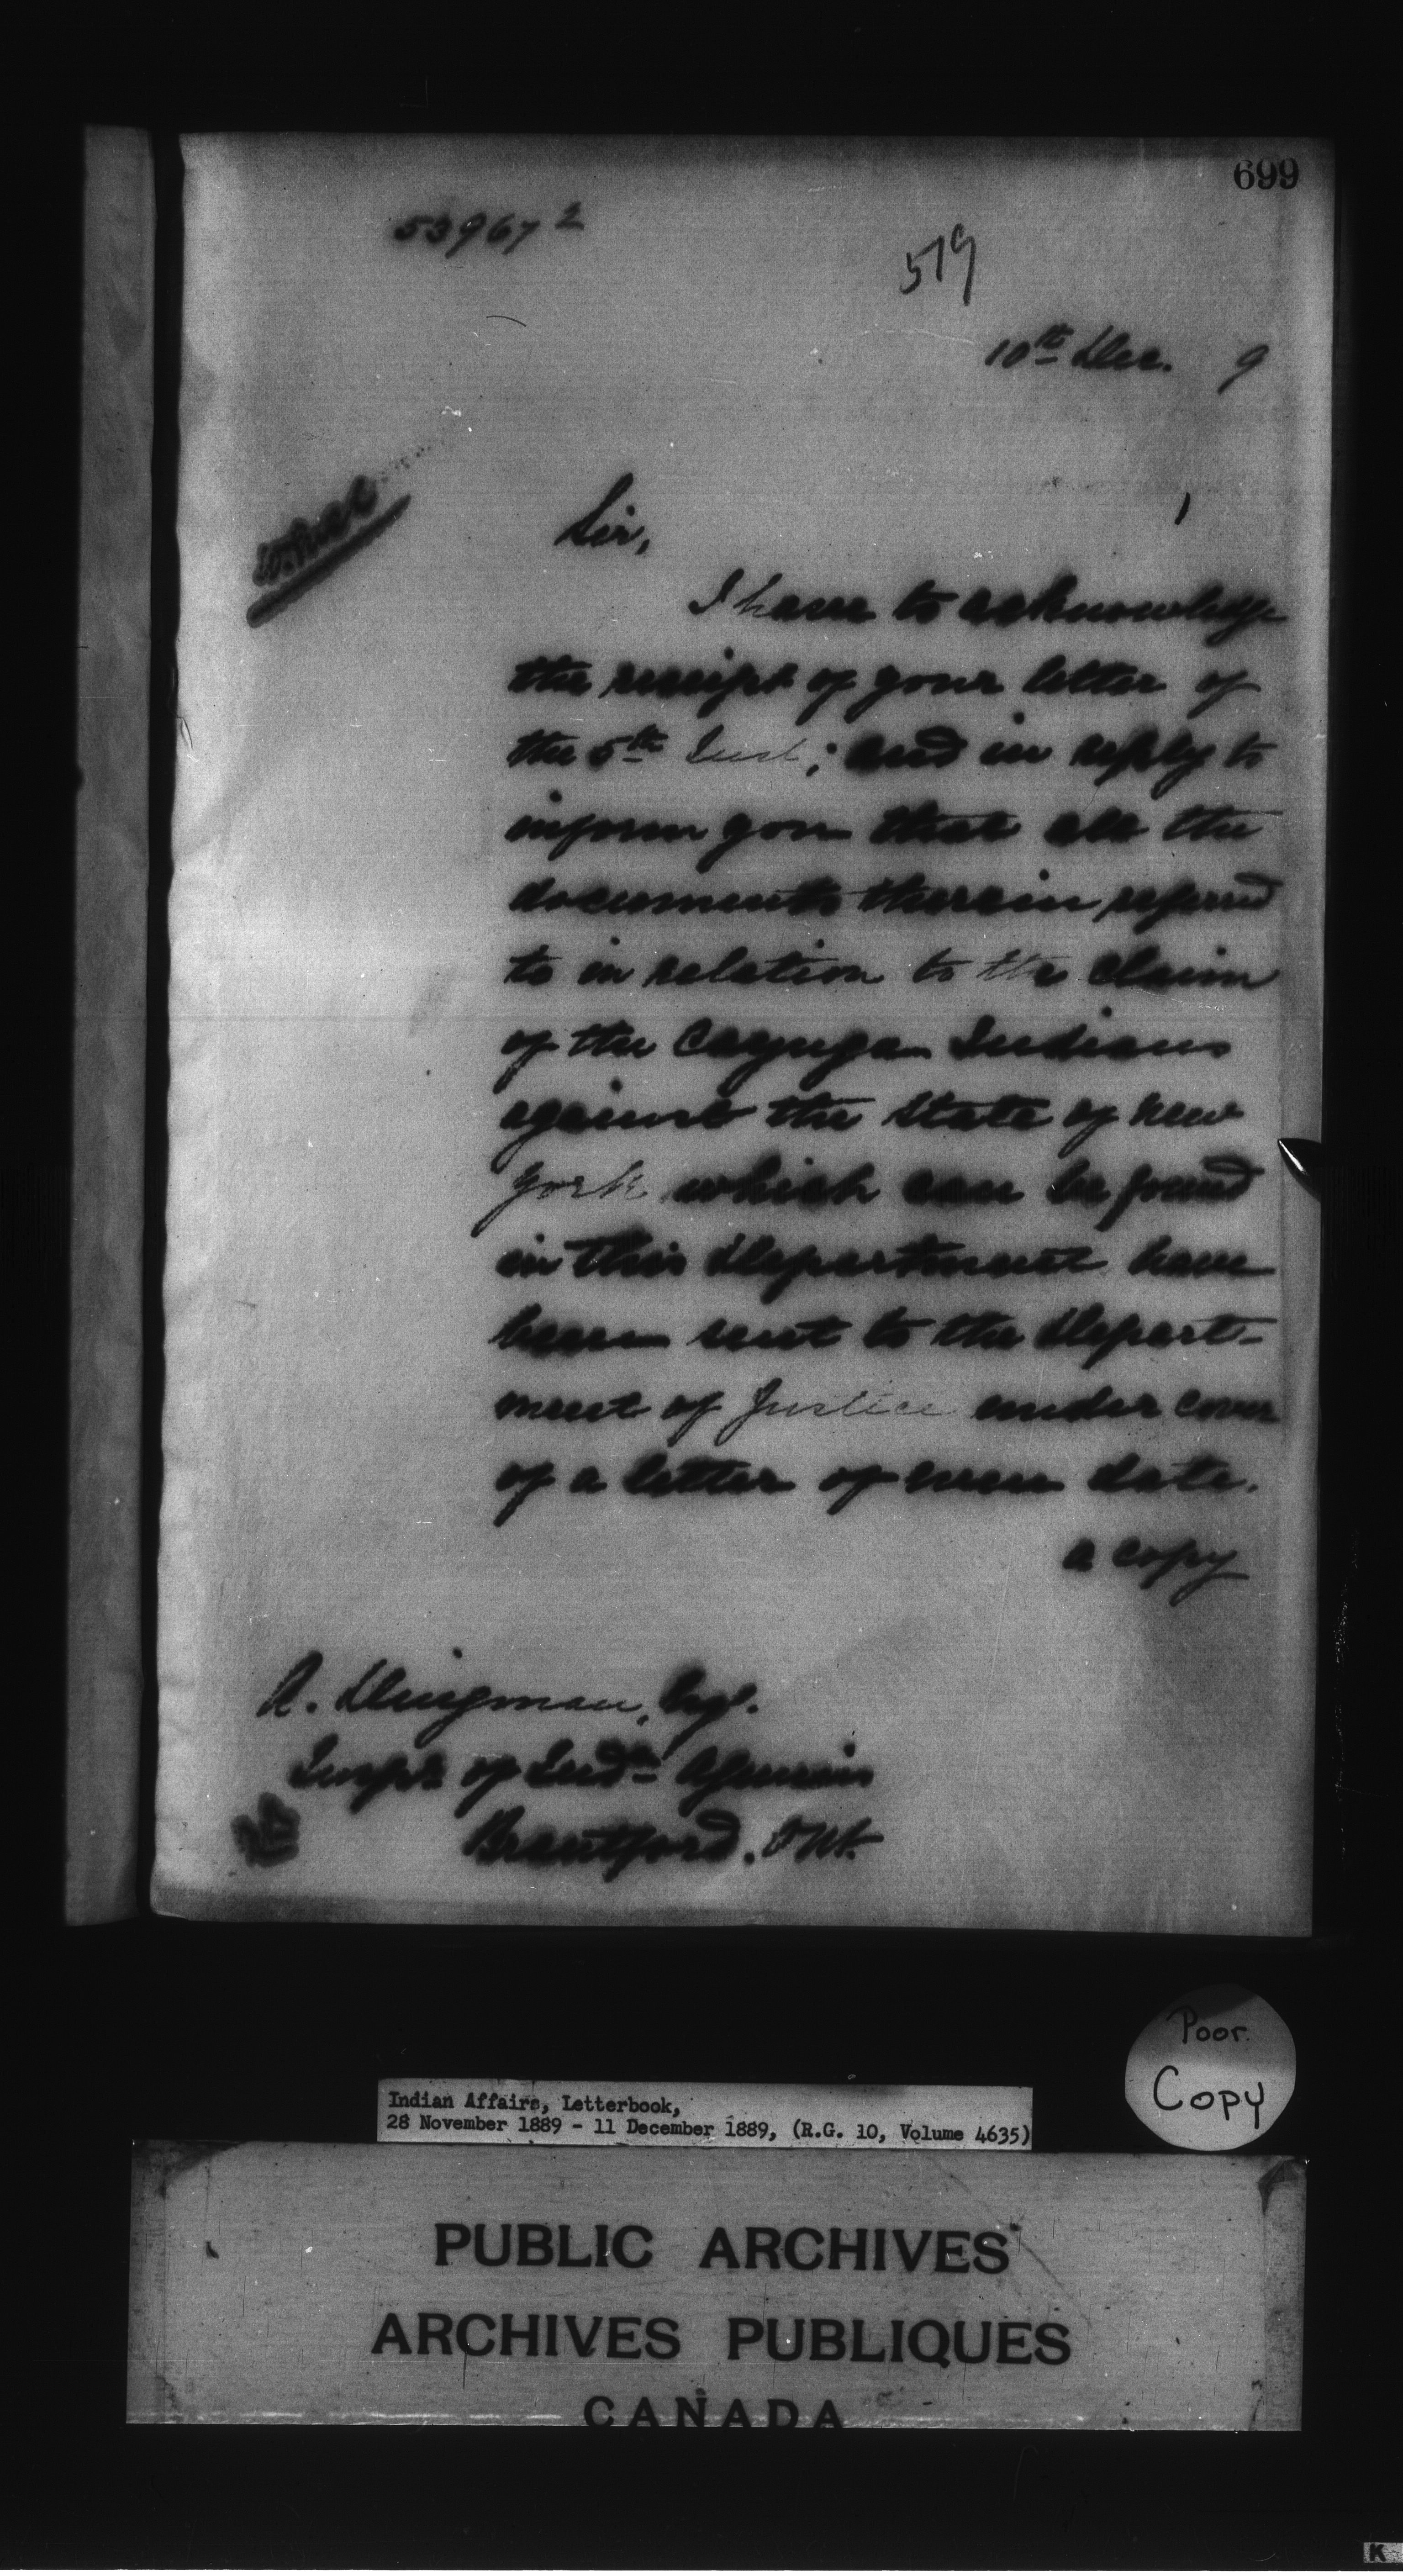 699
53967 2
579
10th Dec. 9
Sir,
I have to acknowledge
the receipt of your letter of
the 5th Inst; and in reply to
inform you that all the
documents therein referred
to in relation to the claim
of the Cayuga Indians
against the State of New
York which can be found
in this Department have
been sent to the Depart-
ment of Justice under cover
of a letter of even date.
a copy
A. Dingman, Esq.
Inspr. of Indn Agencies
Brantford. Ont.
Poor
Copy
Indian Affairs, Letterbook,
28 November 1889 - 11 December 1889, (R.G. 10, Volume 4635)
PUBLIC ARCHIVES
ARCHIVES PUBLIQUES
CANADA
K